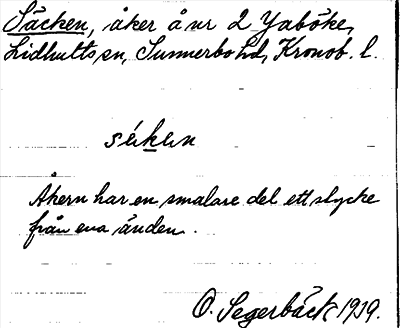 Säcken, åker å nr 2 Yaböke,
Lidhults sn, Sunnerbo hd, Kronob. l.
sékn
Åkern har en smalare del ett stycke
från ena änden.
O. Segerbäck 1939.